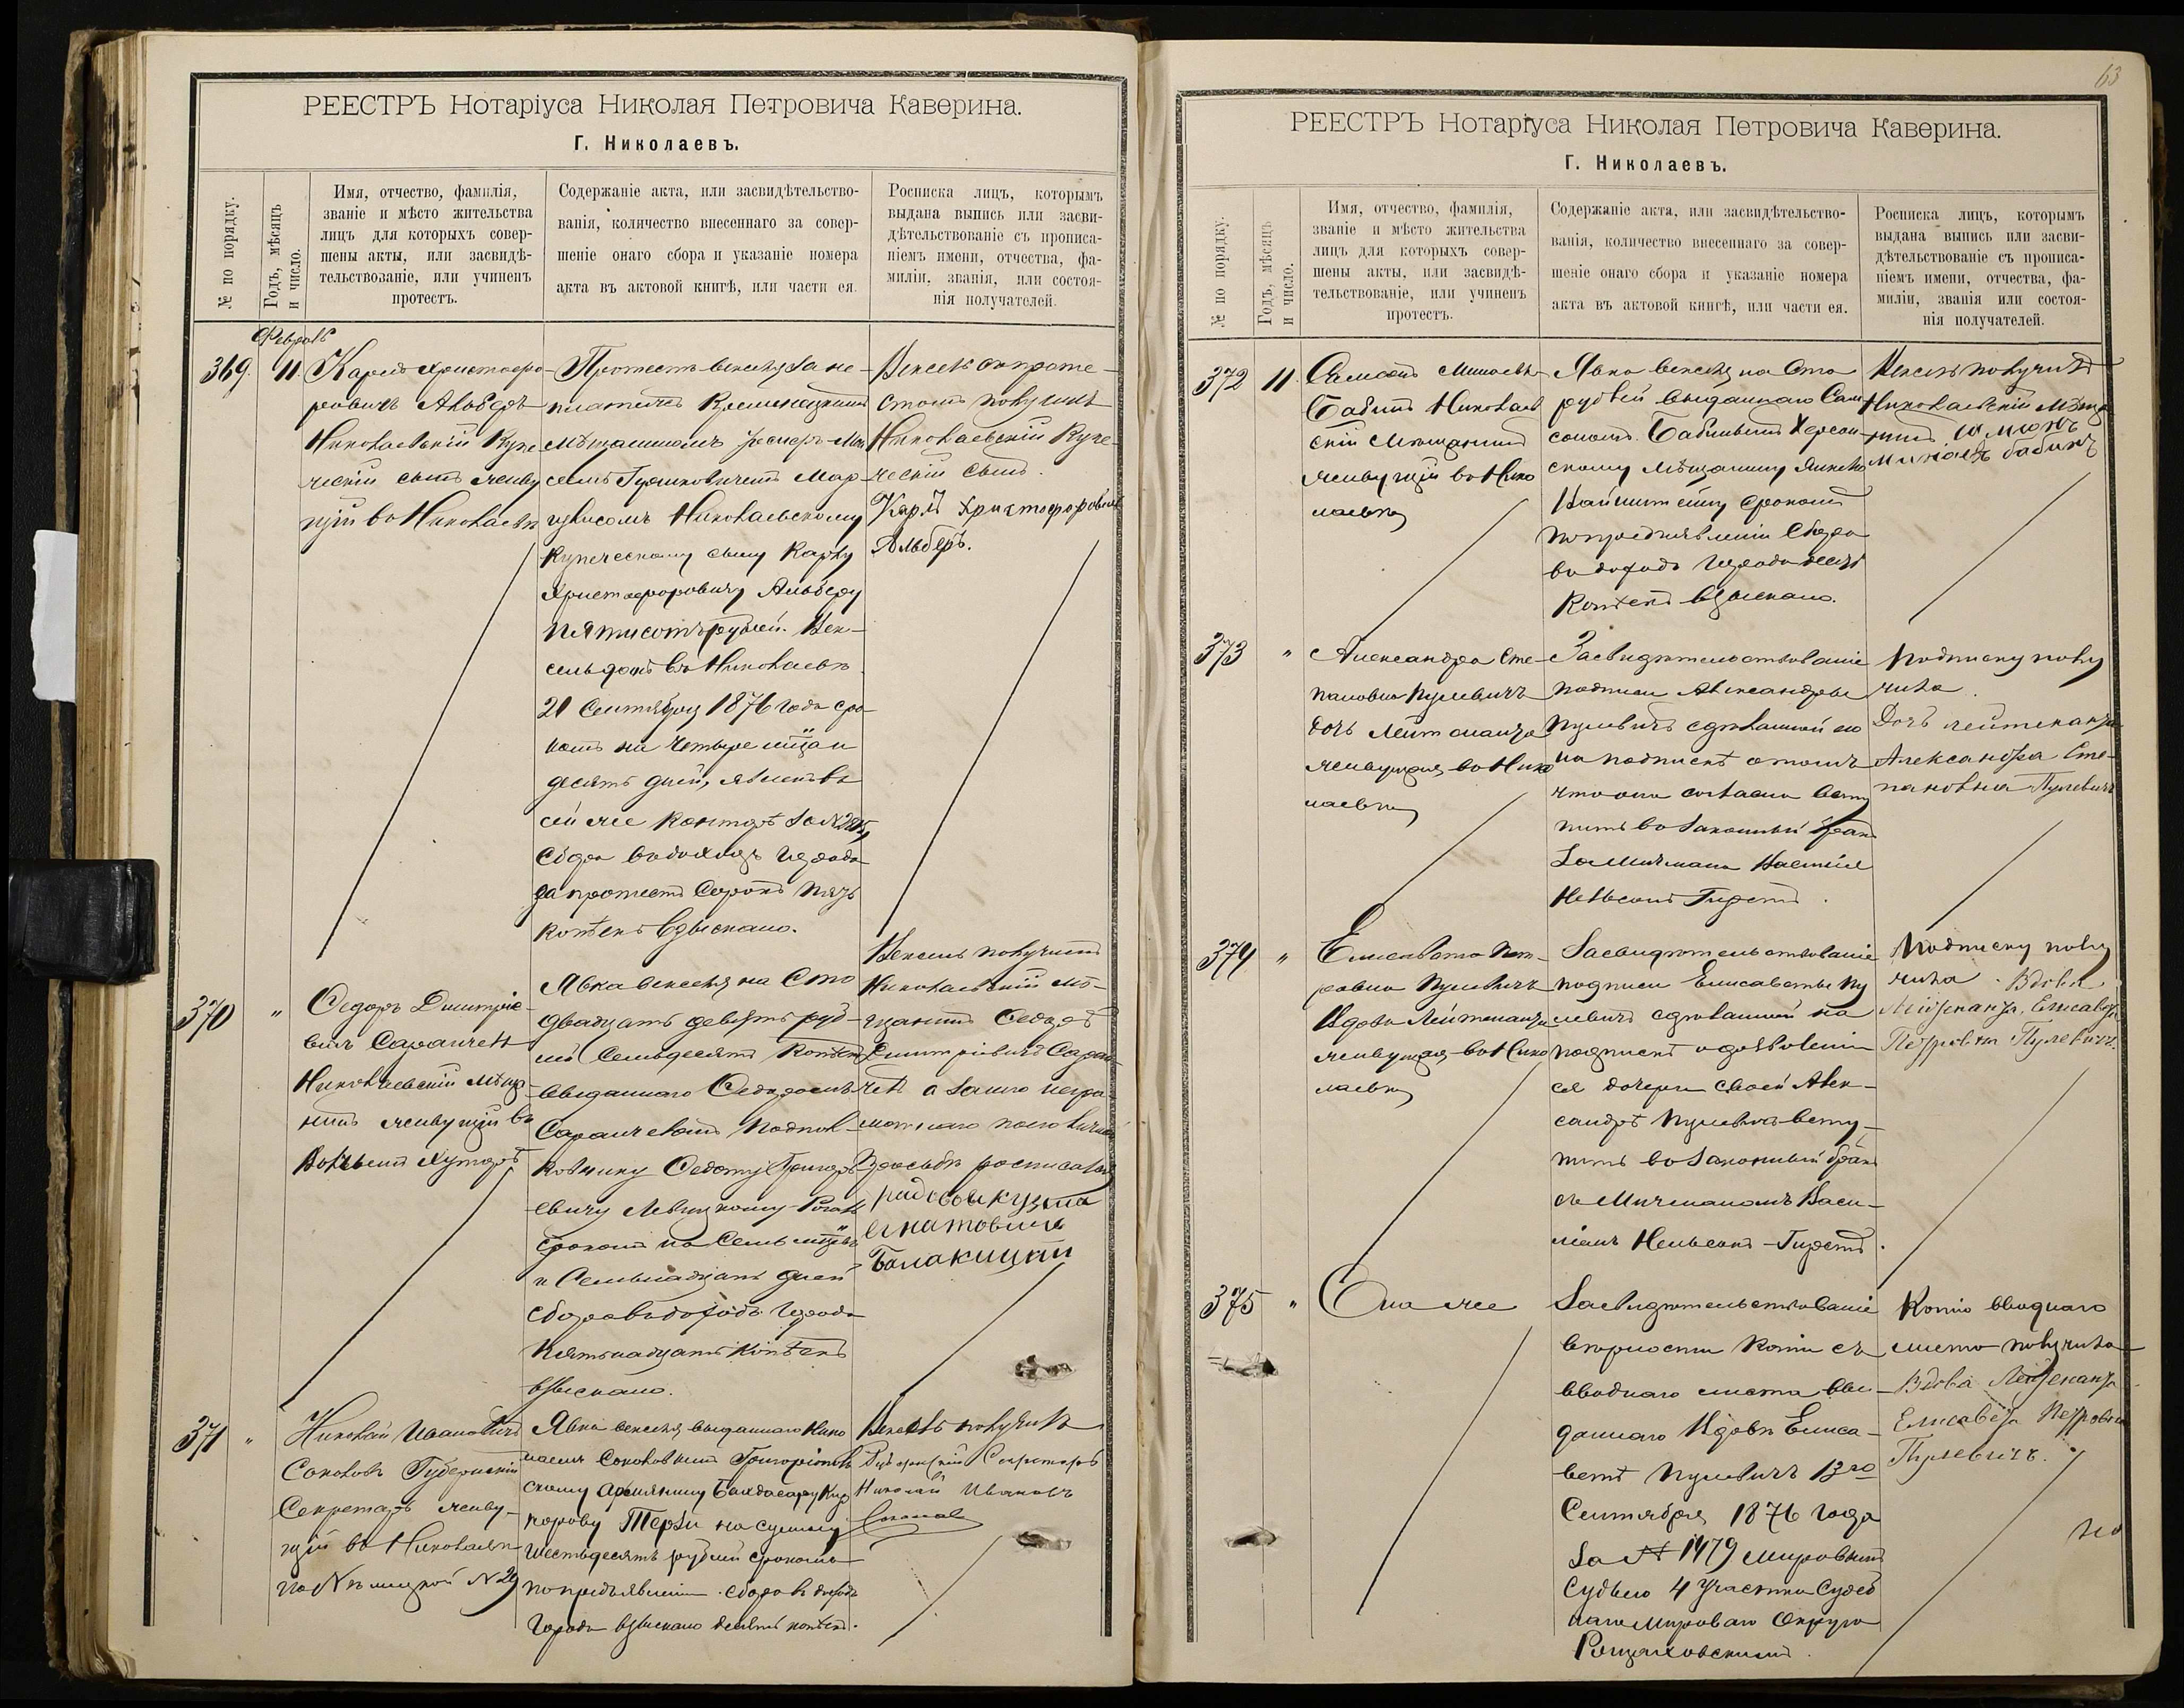 РЕЕСТРЪ Нотаріуса Николая Петровича Каверина.
Г. Николаевъ.
№ по порядку.
Годъ, мѣсяцъ
и число.
Имя, отчество, фамилія,
званіе и мѣсто жительства
лицъ для которыхъ совер-
шены акты, или засвидѣ-
тельствованіе, или учиненъ
протестъ.
Содержаніе акта, или засвидѣтельство-
ванія, количество внесеннаго за совер-
шеніе онаго сбора и указаніе номера
акта въ актовой книгѣ, или части ея.
Росписка лицъ, которымъ
выдана выпись или засви-
дѣтельствованіе съ прописа-
ніемъ имени, отчества, фа-
миліи, званія, или состоя-
нія получателей.
369. 11.
Карлъ Христофо-
ровичъ Альберъ
Николаевскій Купе
ческій сынъ живу
щій въ Николаевѣ
Протестъ векселя за не-
платежъ
Мѣщаниномъ
Николаевскому
Купеческому сыну Карлу
Христофоровичу Альберу
пятисотъ рублей. Век-
сель данъ въ Николаевѣ
21 Сентября 1876 года сро
комъ на четыре мѣца и
десять дней, явленъ въ
сей же Конторѣ за №
Сбора въ доходъ города
за протестъ Сорокъ пять
копѣекъ взыскано.
Вексель съ проте-
стомъ получилъ
Николаевскій Купе-
ческій сынъ.
Карлъ Христофоровичъ
Альберъ.
370 "
Ѳедоръ Дмитріе-
вичъ
Николаевскій Мѣща-
нинъ живущій въ
хуторѣ
Явка векселя на Сто
двадцать девять руб-
лей Семьдесятъ копѣекъ
выданнаго Ѳедоромъ
Подпол-
ковнику Ѳедоту Григорь-
евичу
срокомъ на Семь мѣцевъ
и Семнадцать дней
сбора въ доходъ города
Пятнадцать копѣекъ
взыскано.
Вексель получилъ
Николаевскій Мѣ-
щанинъ Ѳедоръ
Дмитріевичъ
а за него негра-
мотнаго по его личной
просьбѣ росписался
рядовой кузма
371 "
Николай Ивановичъ
Соколовъ Губернскій
Секретарь живу-
щій въ Николаевѣ
по Нѣмецкой № 29
Явка векселя выданнаго Нико
лаемъ Соколовымъ Григоріополь
скому
Терзи на сумму
шестьдесятъ рублей срокомъ
по предъявленіи. Сбора въ доходъ
города взыскано десять копѣекъ.
Вексель получилъ
Губернскій Секретарь
Николай Ивановъ
Соколовъ
63
РЕЕСТРЪ Нотаріуса Николая Петровича Каверина.
Г. Николаевъ.
№ по порядку.
Годъ, мѣсяцъ
и число.
Имя, отчество, фамилія,
званіе и мѣсто жительства
лицъ для которыхъ совер-
шены акты, или засвидѣ-
тельствованіе, или учиненъ
протестъ.
Содержаніе акта, или засвидѣтельство-
ванія, количество внесеннаго за совер-
шеніе онаго сбора и указаніе номера
акта въ актовой книгѣ, или части ея.
Росписка лицъ, которымъ
выдана выпись или засви-
дѣтельствованіе съ прописа-
ніемъ имени, отчества, фа-
миліи, званія или состоя-
нія получателей.
372 11.
Бабинъ Николаев
скій Мѣщанинъ
живущій въ Нико
лаевѣ
Явка векселя на Сто
рублей выданнаго Сам
сономъ Бабинымъ Херсон-
скому Мѣщанину
срокомъ
по предъявленіи Сбора
въ доходъ города десять
копѣекъ взыскано.
Вексель получилъ
Николаевскій Мѣща
нинъ
бабинъ
373 "
Александра Сте-
пановна Пулевичъ
дочь Лейтенанта
живущая въ Нико
лаевѣ
Засвидѣтельствованіе
подписи Александры
Пулевичъ сдѣланной ею
на подпискѣ о томъ
что она согласна всту
пить въ законный бракъ
за Мичмана Василія
Нельсонъ Гирстъ.
Подписку полу
чила.
Дочь лейтенанта
Александра Сте-
пановна Пулевичъ
374 "
Елисавета Пет-
ровна Пулевичъ
Вдова Лейтенанта
живущая въ Нико
лаевѣ
Засвидѣтельствованіе
подписи Елисаветы Пу
левичъ сдѣланной на
подпискѣ о дозволеніи
ея дочери своей Алек-
сандрѣ Пулевичъ всту-
пить въ законный бракъ
съ Мичманомъ Васи-
ліемъ Нельсонъ-Гирстъ.
Подписку полу
чила. Вдова
Лейтенанта, Елисавета
Петровна Пулевичъ.
375 "
Она же
Засвидѣтельствованіе
вѣрности копіи съ
вводнаго листа вы-
даннаго Вдовѣ Елиса-
ветѣ Пулевичъ 13го
Сентября 1876 года
За № 1479 Мировымъ
Судьею 4 Участка Судеб
наго Мироваго Округа
Копію вводнаго
листа получила
Вдова Лейтенанта
Елисавета Петровна
Пулевичъ.